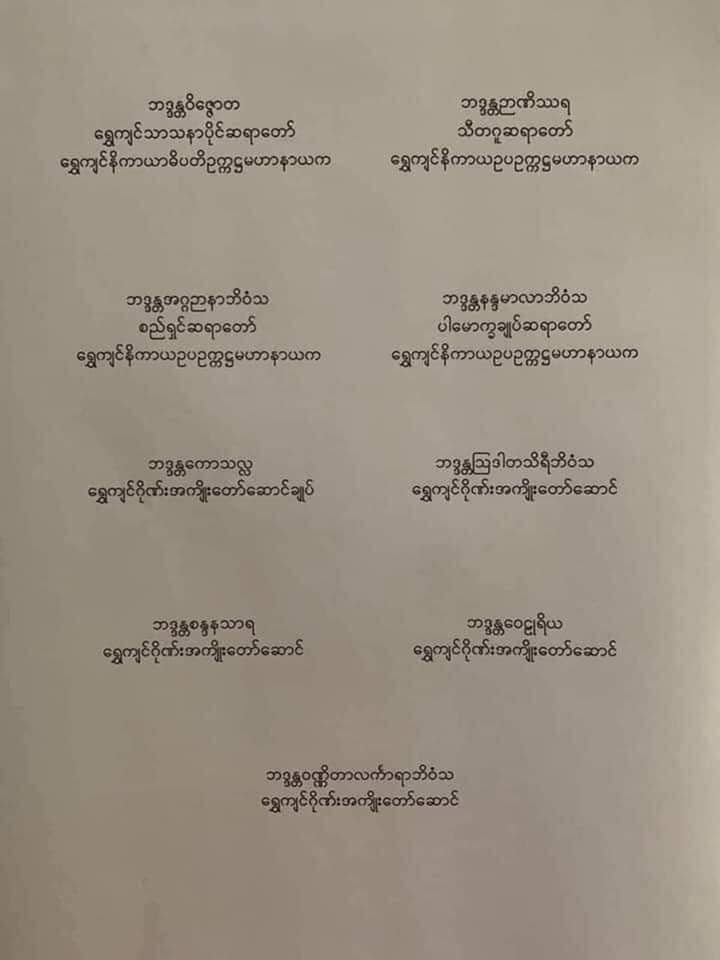 ဘဒ္ဒန္တဝိဇ္ဇောတ
ရွှေကျင်သာသနာပိုင်ဆရာတော်
ရွှေကျင်နိကာယာဓိပတိဥက္ကဋ္ဌမဟာနာယက
ဘဒ္ဒန္တဉာဏိဿရ
သီတဂူဆရာတော်
ရွှေကျင်နိကာယဥပဥက္ကဋ္ဌမဟာနာယက
ဘဒ္ဒန္တအဂ္ဂဉာနာဘိဝံသ
စည်ရှင်ဆရာတော်
ရွှေကျင်နိကာယဥပဥက္ကဋ္ဌမဟာနာယက
ဘဒ္ဒန္တနန္ဒမာလာဘိဝံသ
ပါမောက္ခချုပ်ဆရာတော်
ရွှေကျင်နိကာယဥပဥက္ကဋ္ဌမဟာနာယက
ဘဒ္ဒန္တကောသလ္လ
ရွှေကျင်ဂိုဏ်းအကျိုးတော်ဆောင်ချုပ်
ဘဒ္ဒန္တဩဒါတသိရီဘိဝံသ
ရွှေကျင်ဂိုဏ်းအကျိုးတော်ဆောင်
ဘဒ္ဒန္တစန္ဒနသာရ
ရွှေကျင်ဂိုဏ်းအကျိုးတော်ဆောင်
ဘဒ္ဒန္တဝေဠုရိယ
ရွှေကျင်ဂိုဏ်းအကျိုးတော်ဆောင်
ဘဒ္ဒန္တဝဏ္ဏိတာလင်္ကာရာဘိဝံသ
ရွှေကျင်ဂိုဏ်းအကျိုးတော်ဆောင်